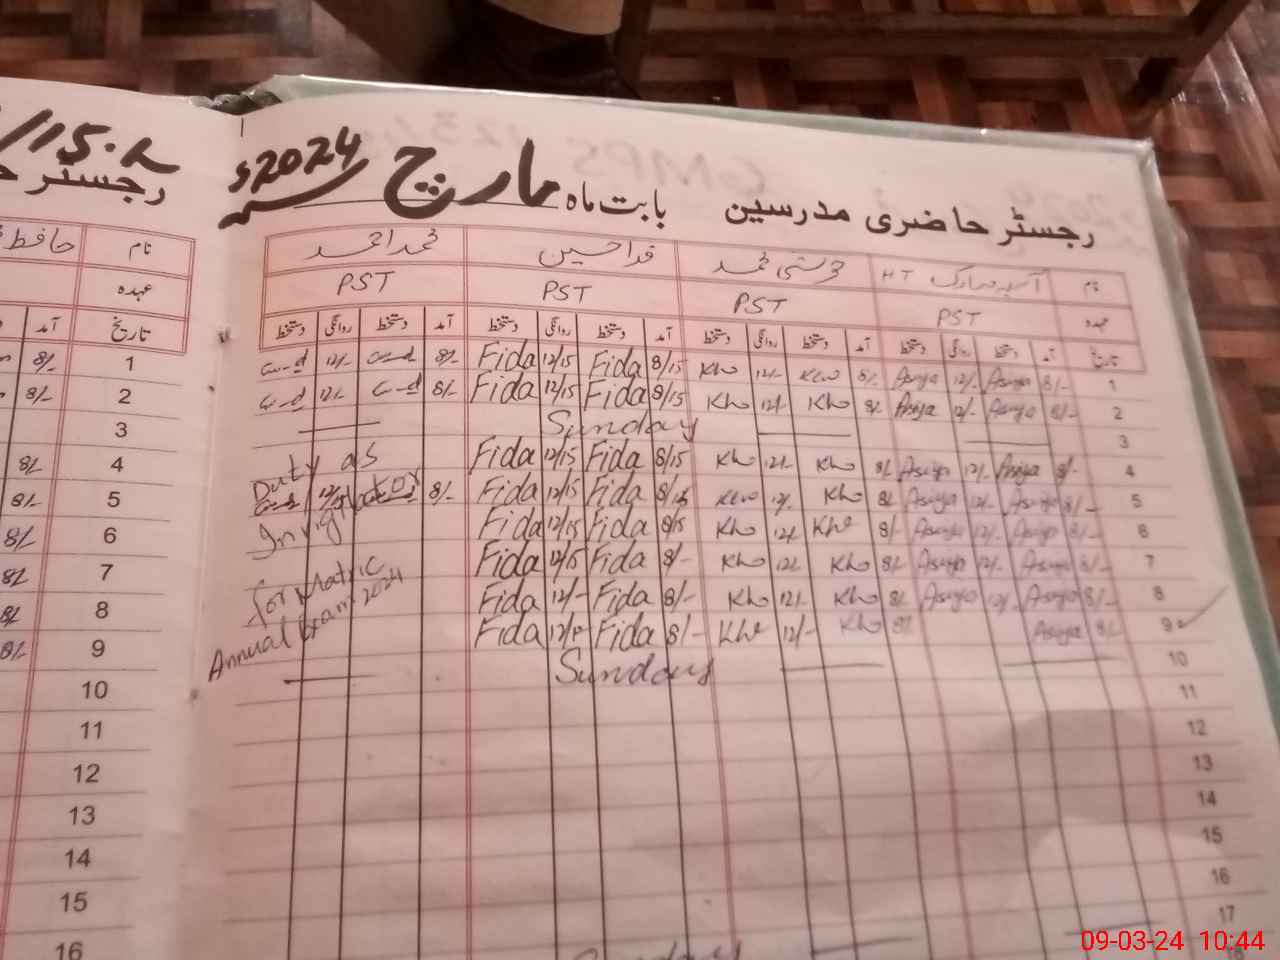 /15.2
رجسٹر حا
رجسٹر حاضری مدرسین بابت ماہ مارچ 2024ء
نام آسیہ مبارک HT خوشی محمد فدا حسین محمد احمد
عہدہ PST PST PST PST
تاریخ آمد دستخط روانگی دستخط آمد دستخط روانگی دستخط آمد دستخط روانگی دستخط آمد دستخط روانگی دستخط
1 8/- Asiya 12/- Asiya 8/- Kho 12/- Kho 8/15 Fida 12/15 Fida 8/- 12/-
2 8/- Asiya 12/- Asiya 8/- Kho 12/- Kho 8/15 Fida 12/15 Fida 8/- 12/-
3 Sunday
4 8/- Asiya 12/- Asiya 8/- Kho 12/- Kho 8/15 Fida 12/15 Fida Duty as
5 8/- Asiya 12/- Asiya 8/- Kho 12/- Kho 8/15 Fida 12/15 Fida 8/-
6 8/- Asiya 12/- Asiya 8/- Kho 12/- Kho 8/15 Fida 12/15 Fida Invigilator
7 8/- Asiya 12/- Asiya 8/- Kho 12/- Kho 8/- Fida 12/15 Fida
8 8/- Asiya 12/- Asiya 8/- Kho 12/- Kho 8/- Fida 12/- Fida for Matric
9 8/- Asiya 8/- Kho 12/- Kho 8/- Fida Fida Annual Exam 2024
10 Sunday
11
12
13
14
15
16
17
18
نام حافظ
عہدہ
تاریخ آمد
1 8/-
2 8/-
3
4 8/-
5 8/-
6 8/-
7 8/-
8 8/-
9 8/-
10
11
12
13
14
15
16
09-03-24 10:44